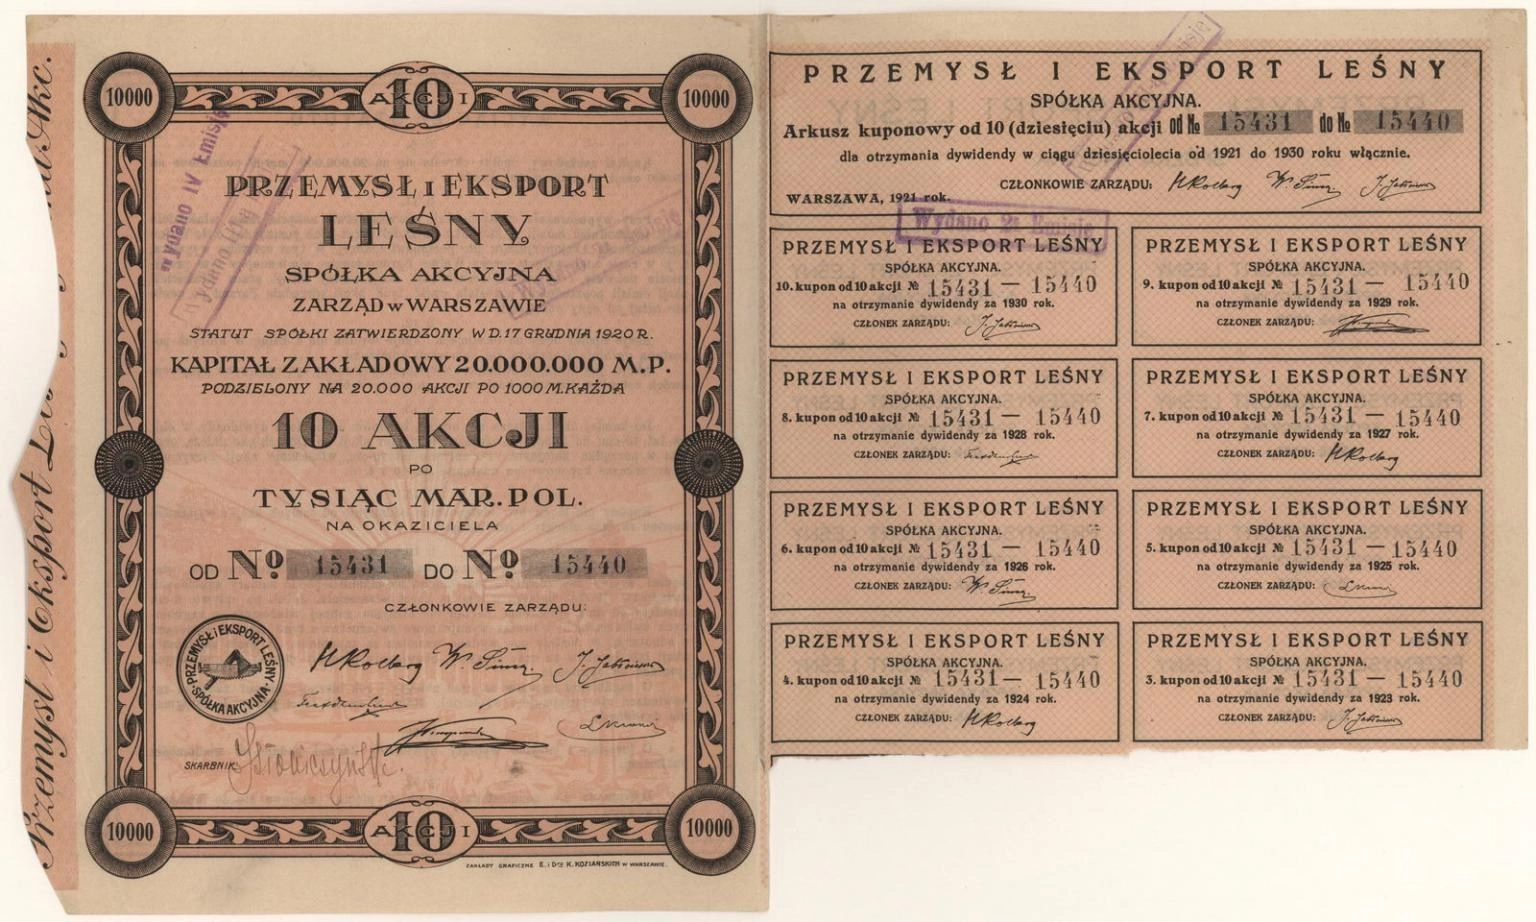 Przemysł i Eksport
10000
10
AKCJI
10000
Wydano IV Emisję
PRZEMYSŁ I EKSPORT
LEŚNY
SPÓŁKA AKCYJNA
ZARZĄD w WARSZAWIE
STATUT SPÓŁKI ZATWIERDZONY W D. 17 GRUDNIA 1920 R.
KAPITAŁ ZAKŁADOWY 20.000.000 M.P.
PODZIELONY NA 20.000 AKCJI PO 1000 M. KAŻDA
10 AKCJI
PO
TYSIĄC MAR. POL.
NA OKAZICIELA
OD No 15431 DO No 15440
CZŁONKOWIE ZARZĄDU:
HKolberg
PRZEMYSŁ i EKSPORT LEŚNY
SPÓŁKA AKCYJNA
SKARBNIK
10000
10
AKCJI
10000
ZAKŁADY GRAFICZNE E. i Dra K. KOZIAŃSKICH w WARSZAWIE.
PRZEMYSŁ I EKSPORT LEŚNY
SPÓŁKA AKCYJNA.
Arkusz kuponowy od 10 (dziesięciu) akcji od No 15431 do No 15440
dla otrzymania dywidendy w ciągu dziesięciolecia od 1921 do 1930 roku włącznie.
CZŁONKOWIE ZARZĄDU: HKolberg
WARSZAWA, 1921 rok.
Wydano 2ą Emisję
PRZEMYSŁ I EKSPORT LEŚNY
SPÓŁKA AKCYJNA.
10. kupon od 10 akcji No 15431 — 15440
na otrzymanie dywidendy za 1930 rok.
CZŁONEK ZARZĄDU:
PRZEMYSŁ I EKSPORT LEŚNY
SPÓŁKA AKCYJNA.
9. kupon od 10 akcji No 15431 — 15440
na otrzymanie dywidendy za 1929 rok.
CZŁONEK ZARZĄDU:
PRZEMYSŁ I EKSPORT LEŚNY
SPÓŁKA AKCYJNA.
8. kupon od 10 akcji No 15431 — 15440
na otrzymanie dywidendy za 1928 rok.
CZŁONEK ZARZĄDU:
PRZEMYSŁ I EKSPORT LEŚNY
SPÓŁKA AKCYJNA.
7. kupon od 10 akcji No 15431 — 15440
na otrzymanie dywidendy za 1927 rok.
CZŁONEK ZARZĄDU: HKolberg
PRZEMYSŁ I EKSPORT LEŚNY
SPÓŁKA AKCYJNA.
6. kupon od 10 akcji No 15431 — 15440
na otrzymanie dywidendy za 1926 rok.
CZŁONEK ZARZĄDU:
PRZEMYSŁ I EKSPORT LEŚNY
SPÓŁKA AKCYJNA.
5. kupon od 10 akcji No 15431 — 15440
na otrzymanie dywidendy za 1925 rok.
CZŁONEK ZARZĄDU:
PRZEMYSŁ I EKSPORT LEŚNY
SPÓŁKA AKCYJNA.
4. kupon od 10 akcji No 15431 — 15440
na otrzymanie dywidendy za 1924 rok.
CZŁONEK ZARZĄDU: HKolberg
PRZEMYSŁ I EKSPORT LEŚNY
SPÓŁKA AKCYJNA.
3. kupon od 10 akcji No 15431 — 15440
na otrzymanie dywidendy za 1923 rok.
CZŁONEK ZARZĄDU: